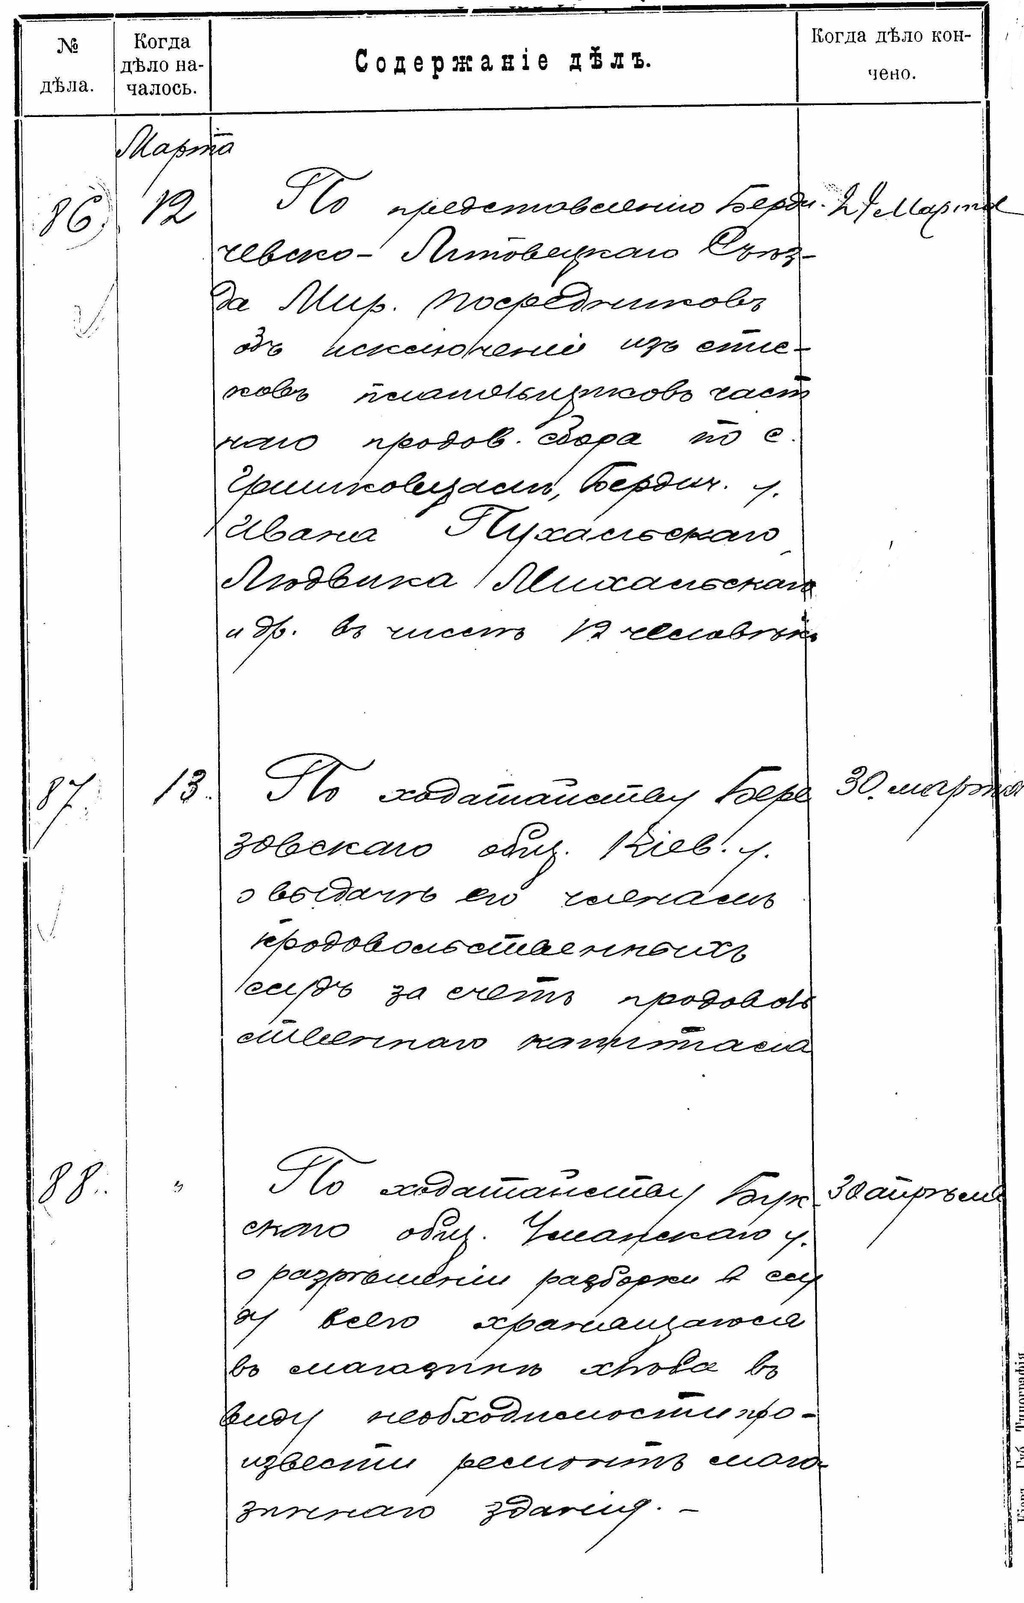 № дѣла.
Когда дѣло на-
чалось.
Содержаніе дѣлъ.
Когда дѣло кон-
чено.
Марта
86 12 По представленію Берди- 21 Марта
чевско-Липовецкаго Съѣз-
да Мир. Посредниковъ
объ исключеніи изъ спис-
ковъ плательщиковъ част
наго продов. сбора по с.
Гришковцамъ, Бердич. у.
Ивана Пухальскаго
Людвика Михальскаго
и др. въ числѣ 12 человѣкъ
87. 13. По ходатайству Бере 30. марта
зовскаго общ. Кіев. у.
о выдачѣ его членамъ
продовольственныхъ
ссудъ за счетъ продоволь
ственнаго капитала
88. " По ходатайству Бук- 30 апрѣля
скаго общ. Уманскаго у.
о разрѣшеніи разборки в ссу
ду всего хранящагося
въ магазинѣ хлѣба въ
виду необходимости про-
извести ремонтъ мага-
зиннаго зданія. —
Кіевъ. Губ. Типографія